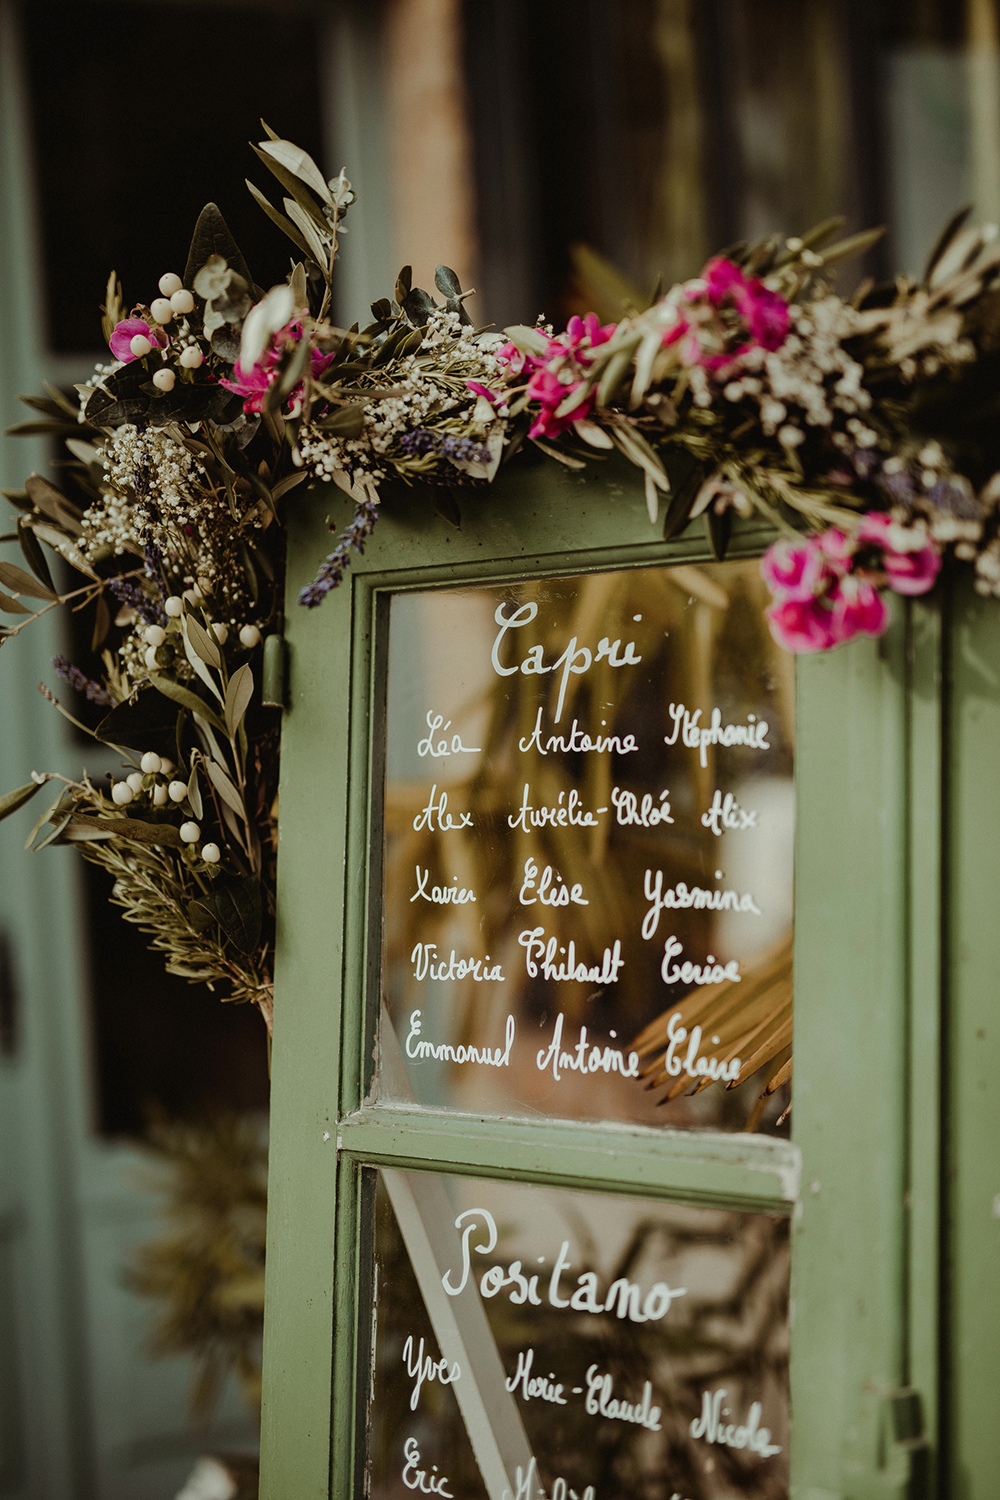 Capri
Léa Antoine Stéphanie
Alex Aurélie-Chloé Alix
Xavier Elise Yasmina
Victoria Thibault Cerise
Emmanuel Antoine Claire
Positano
Yves Marie-Claude Nicole
Eric